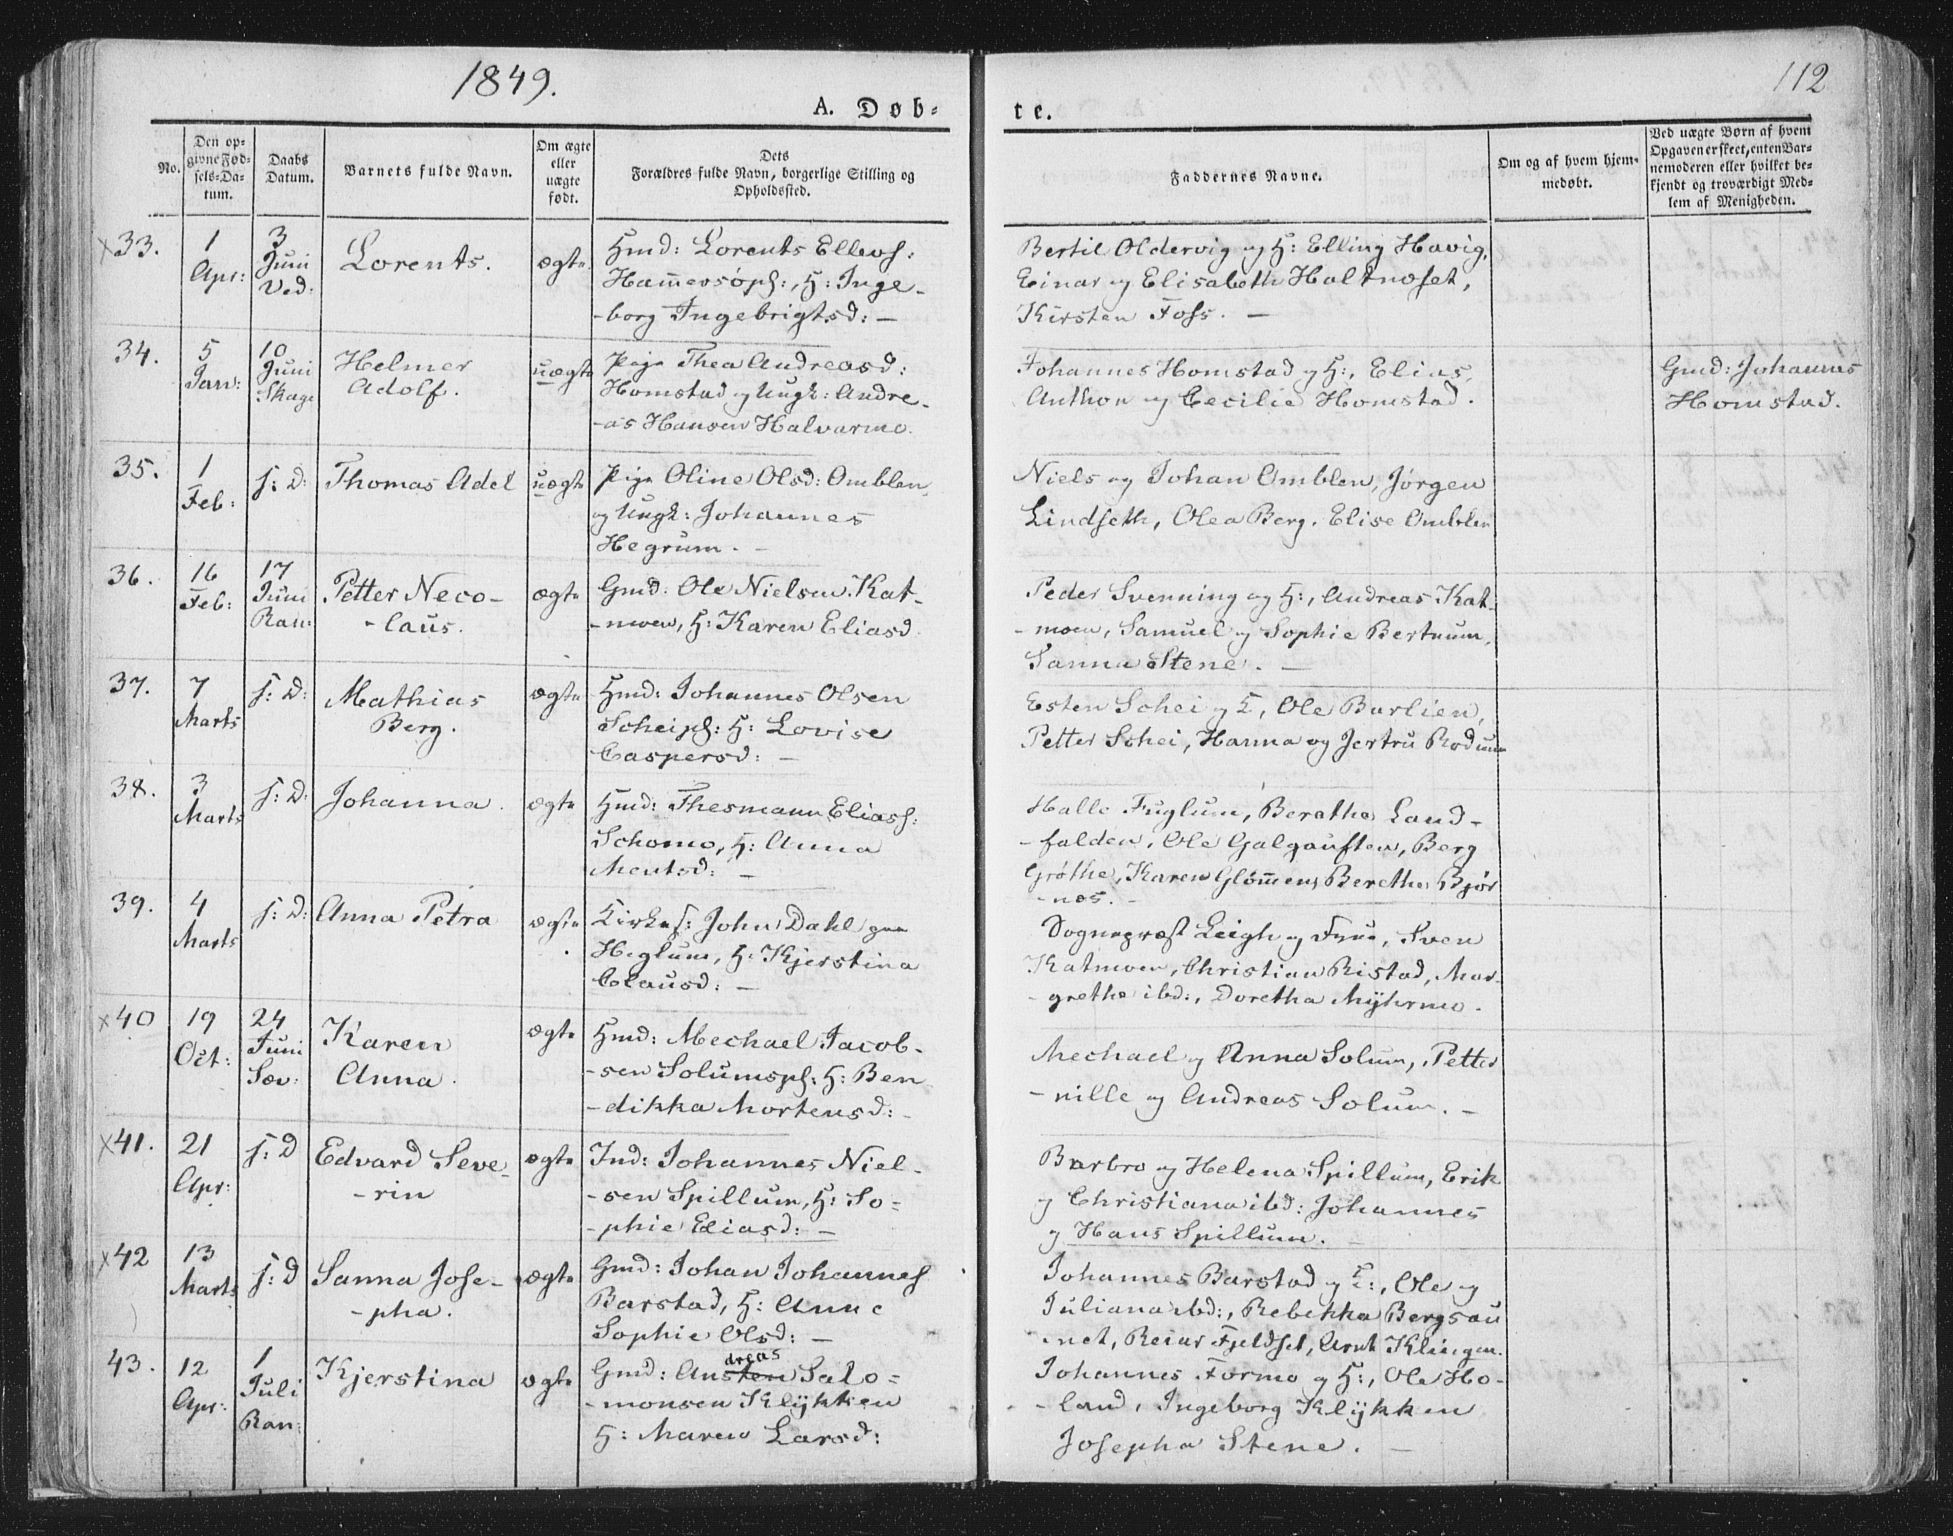 1849.
112
A. Døb-
te.
No.
Den op-
givne Fød-
sels-Da-
tum.
Daabs
Datum.
Barnets fulde Navn.
Om ægte
eller
uægte
født.
Dets
Forældres fulde Navn, borgerlige Stilling og
Opholdssted.
Faddernes Navne.
Om og af hvem hjem-
medøbt.
Ved uægte Børn af hvem
Opgaven er skeet, enten Bar-
nemoderen eller hvilket be-
kjendt og troværdigt Med-
lem af Menigheden.
x33.
1
Apr:
3
Juni
Vod.
Lorents.
ægte
Hmd: Lorents Ellevs:
Hamersøpl:, H: Inge-
-borg Ingebrigtsd: -
Bertil Oldervig og H: Elling Havig,
Einar og Elisabeth Haltnæset,
Kirsten Foss. -
34.
5
Jan:
10
Juni
Skage
Helmer
Adolf.
uægte
Pige Thea Andreasd:
Homstad og Ungk: Andre-
-as Hansen Halvarmo.
Johannes Homstad og H:, Elias,
Anthon og Cecilie Homstad.
Gmd: Johannes
Homstad.
35.
1
Feb:
s: D:
Thomas Adel
uægte
Pige Oline Olsd: Omblen
og Ungk: Johannes
Hegrum. -
Niels og Johan Omblen, Jørgen
Lindseth, Olea Berg. Elise Omblen
36.
16
Feb:
17
Juni
Ran:
Petter Neco-
-laus.
ægte
Gmd: Ole Nielsen Kat-
-moen, H: Karen Eliasd.
Peder Svenning og H:, Andreas Kat-
-moen, Samuel og Sophie Bertnum,
Sanna Stene. -
37.
7
Marts
s: D:
Mathias
Berg.
ægte
Hmd: Johannes Olsen
Scheipl: H: Lovise
Caspersd: -
Esten Schei og H, Ole Barlien,
Petter Schei, Hanna og Jertru Rodum
38.
3
Marts
s: D:
Johanna.
ægte
Hmd: Thesmann Eliass:
Schomo, H: Anna
Mentsd: -
Halle Fuglum, Berethe Land-
-falden, Ole Galgauften, Berg
Grøthe, Karen Glømen, Berethe Bjør
-næs. -
39.
4
Marts
s: D:
Anna Petra
ægte
Kirkes: John Dahl
Heglum, H: Kjerstina
Clausd: -
Sognepræst Leigh og Frue, Sven
Katmoen, Christian Ristad, Mar-
-grethe ibd:, Doretha Mÿhrmo.
x40
19
Oct:
24
Juni
Sæv:
Karen
Anna.
ægte
Hmd: Mechael Jacob-
-sen Solumspl: H: Ben
-dikka Mortensd: -
Mechael og Anna Solum, Petter
-nille og Andreas Solum. -
x41.
21
Apr:
s: D
Edvard Seve-
-rin
ægte
Ind: Johannes Niel-
-sen Spillum, H: So-
-phie Eliasd: -
Barbro og Helena Spillum, Erik
og Christiana ibd: Johannes
og Hans Spillum.
x42
13
Marts
s: D
Sanna Jose-
-pha.
ægte
Gmd: Johan Johannes
Barstad, H: Anne
Sophie Olsd: -
Johannes Barstad og H:, Ole og
Juliana ibd:, Rebekka Bergsau
-net, Reiar Fjeldset, Arnt Klingen.
43.
12
Apr:
1
Juli
Ran:
Kjerstina
ægte
dreas
Gmd: Ansten Salo-
-monsen Klÿkken
H: Maren Larsd:
Johannes Formo og H:, Ole Ho-
-land, Ingeborg Klÿkken
Josepha Stene. -